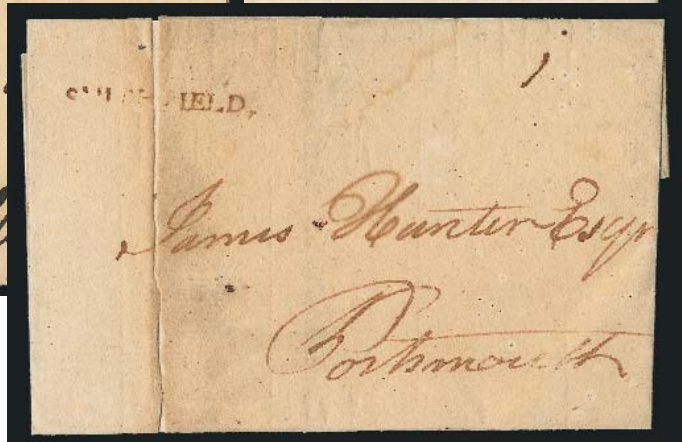 1
James Hunter Esqr
Portsmouth